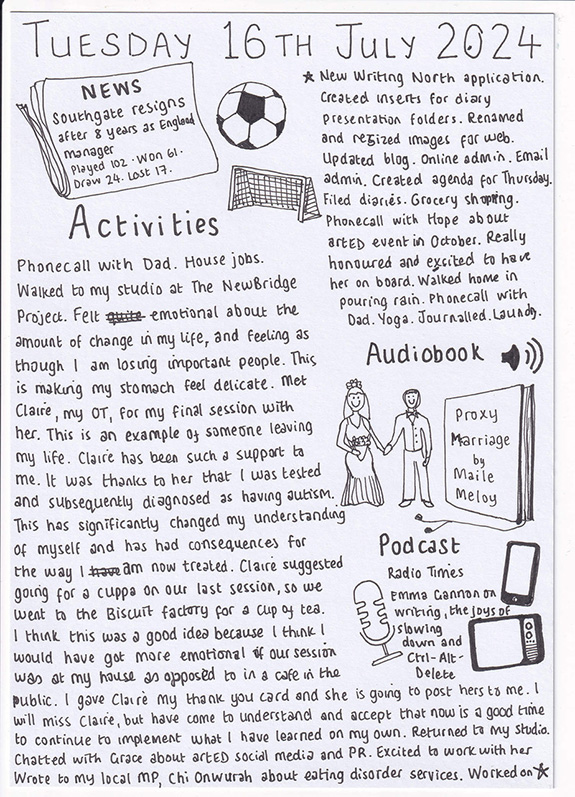 TUESDAY 16TH JULY 2024
NEWS
Southgate resigns
after 8 years as England
manager
Played 102 · Won 61 ·
Draw 24. Lost 17.
Activities
Phonecall with Dad. House jobs.
Walked to my studio at The NewBridge
Project. Felt quite emotional about the
amount of change in my life, and feeling as
though I am losing important people. This
is making my stomach feel delicate. Met
Claire, my OT, for my final session with
her. This is an example of someone leaving
my life. Claire has been such a support to
me. It was thanks to her that I was tested
and subsequently diagnosed as having autism.
This has significantly changed my understanding
of myself and has had consequences for
the way I have am now treated. Claire suggested
going for a cuppa on our last session, so we
went to the Biscuit factory for a cup of tea.
I think this was a good idea because I think I
would have got more emotional if our session
was at my house as opposed to in a cafe in the
public. I gave Claire my thank you card and she is going to post hers to me. I
will miss Claire, but have come to understand and accept that now is a good time
to continue to implement what I have learned on my own. Returned to my studio.
Chatted with Grace about artED social media and PR. Excited to work with her
Wrote to my local MP, Chi Onwurah about eating disorder services. Worked on ☆
★ New Writing North application.
Created inserts for diary
presentation folders. Renamed
and resized images for web.
Updated blog. Online admin. Email
admin. Created agenda for Thursday.
Filed diaries. Grocery shopping.
Phonecall with Hope about
artED event in October. Really
honoured and excited to have
her on board. Walked home in
pouring rain. Phonecall with
Dad. Yoga. Journalled. Laundry.
Audiobook
Proxy
Marriage
by
Maile
Meloy
Podcast
Radio Times
Emma Gannon on
writing, the joys of
slowing
down and
Ctrl-Alt-
Delete